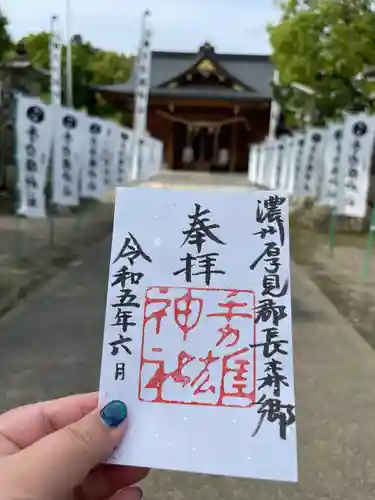 濃州厚見郡長森郷
奉拝
手力雄
神社
令和五年六月